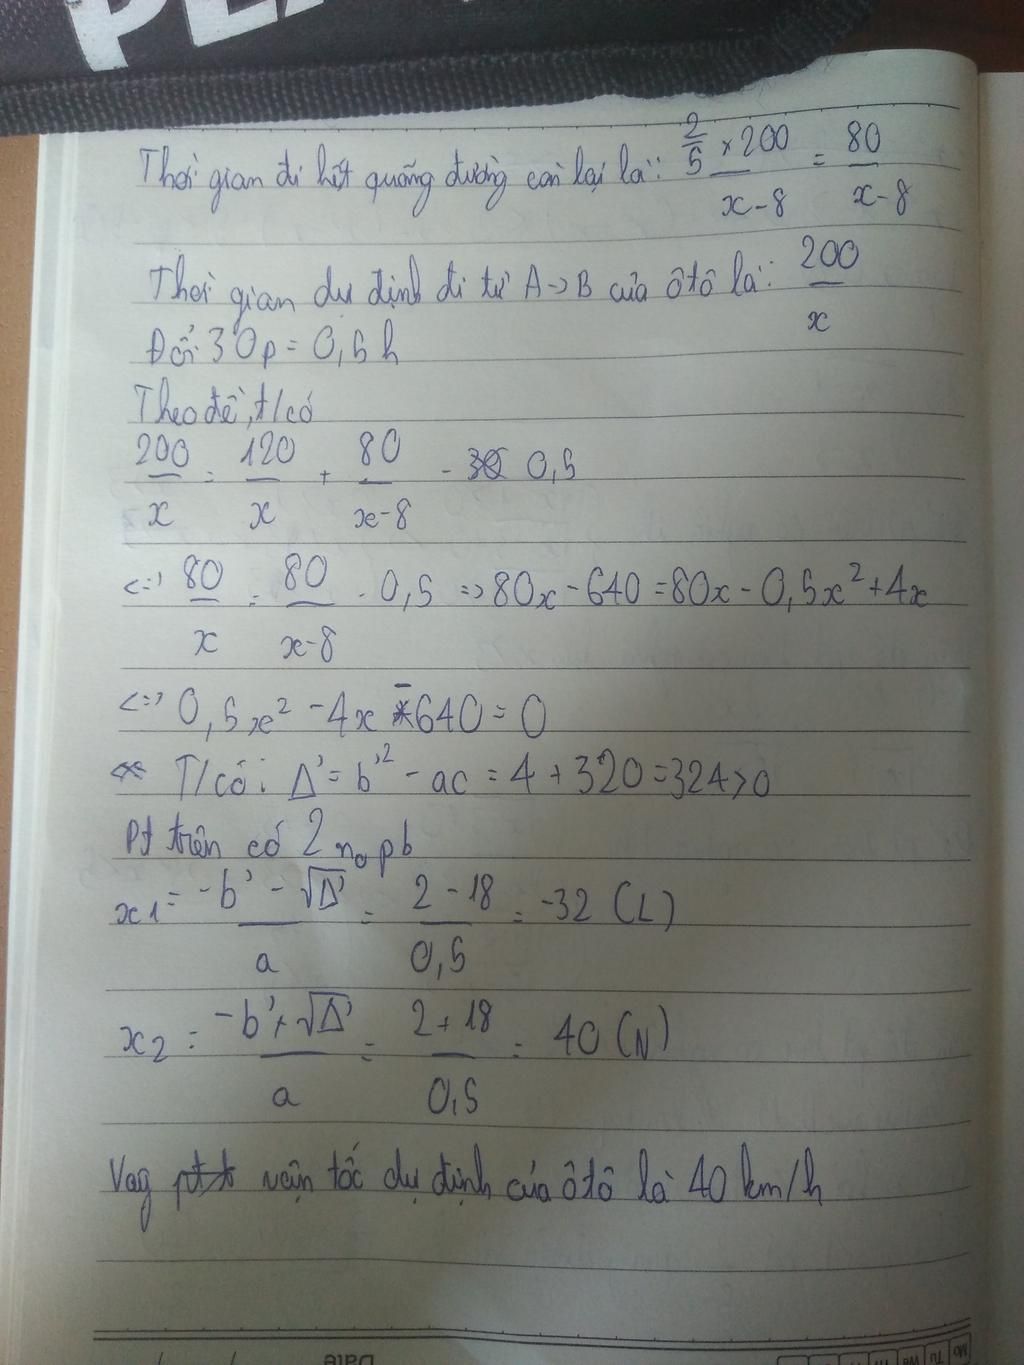 Thời gian đi hết quãng đường còn lại là: \frac{\frac{2}{5} × 200}{x-8} = \frac{80}{x-8}
Thời gian dự định đi từ A→B của ôtô là: \frac{200}{x}
Đổi 30p = 0,5h
Theo đề, t/có
\frac{200}{x} = \frac{120}{x} + \frac{80}{x-8} - 0,5
<=> \frac{80}{x} = \frac{80}{x-8} - 0,5 => 80x - 640 = 80x - 0,5x² + 4x
<=> 0,5x² - 4x - 640 = 0
T/có: Δ' = b'² - ac = 4 + 320 = 324 > 0
Pt trên có 2 no pb
x1 = \frac{-b' - √Δ'}{a} = \frac{2 - 18}{0,5} = -32 (L)
x2 = \frac{-b' + √Δ'}{a} = \frac{2 + 18}{0,5} = 40 (N)
Vậy vận tốc dự định của ôtô là 40 km/h
Date
Mo Tu We Th Fr